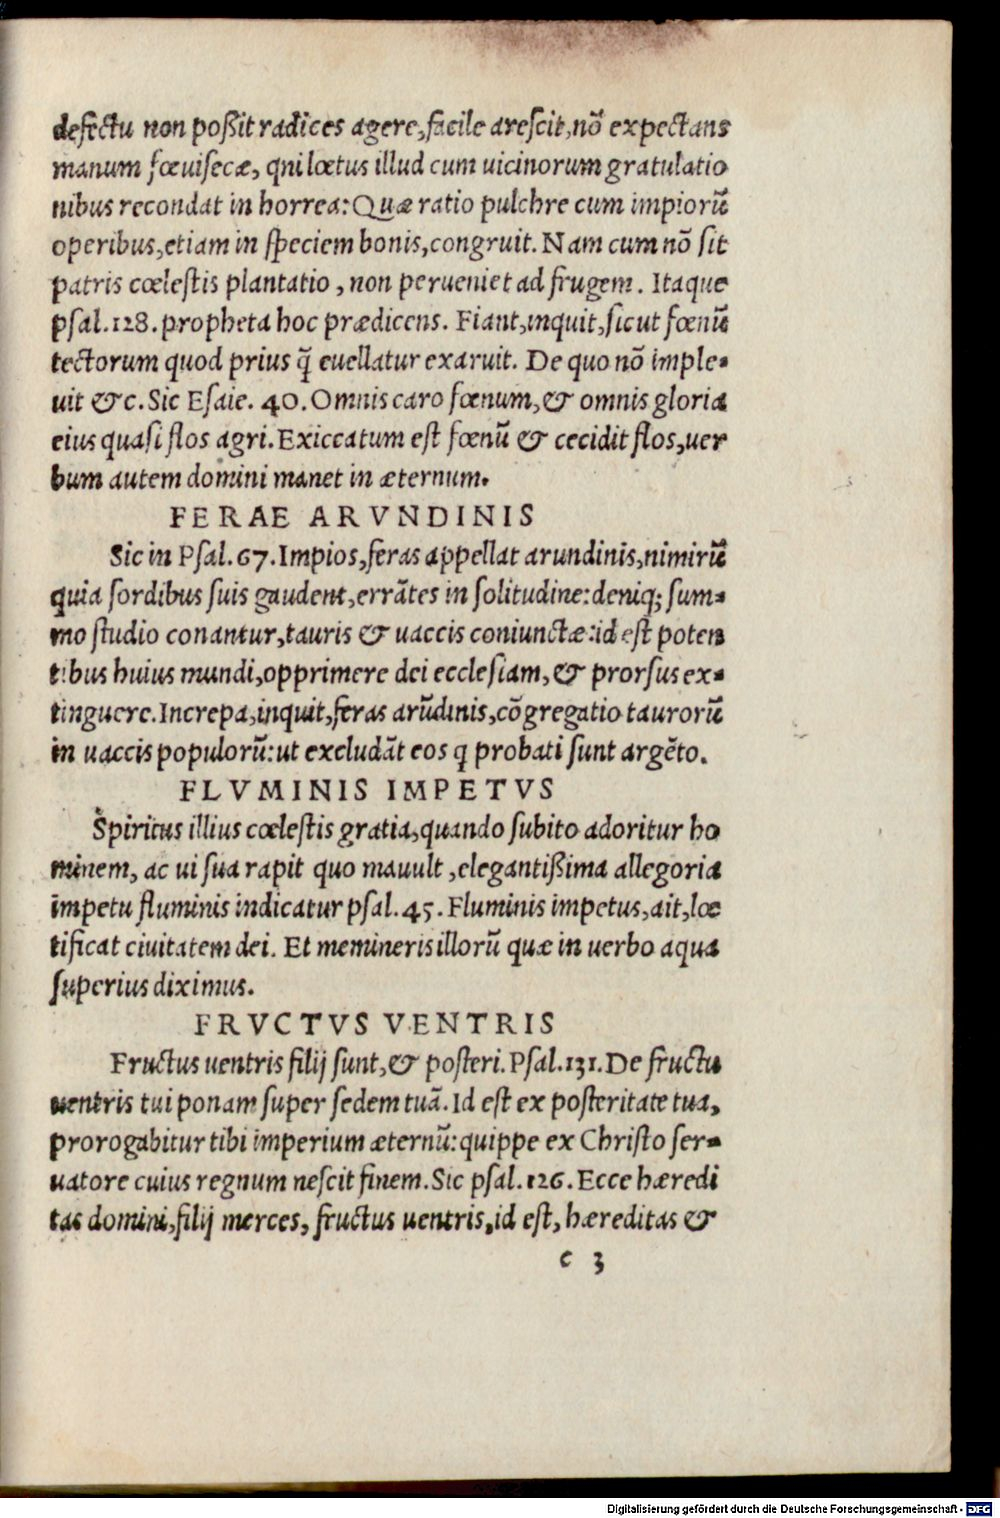 defectu non poßit radices agere, facile arescit, nõ expectans
manum fœuisecæ, qui lœtus illud cum uicinorum gratulatio
nibus recondat in horrea: Quæ ratio pulchre cum impiorũ
operibus, etiam in speciem bonis, congruit. Nam cum nõ sit
patris cœlestis plantatio, non perueniet ad frugem. Itaque
psal. 128. propheta hoc prædicens. Fiant, inquit, sicut fœnũ
tectorum quod prius q̃ euellatur exaruit. De quo nõ imple-
uit &c. Sic Esaie. 40. Omnis caro fœnum, & omnis gloria
eius quasi flos agri. Exiccatum est fœnũ & cecidit flos, uer
bum autem domini manet in æternum.
FERAE ARVNDINIS
Sic in Psal. 67. Impios, feras appellat arundinis, nimirũ
quia sordibus suis gaudent, errãtes in solitudine: deniq; sum-
mo studio conantur, tauris & uaccis coniunctæ: id est poten
tibus huius mundi, opprimere dei ecclesiam, & prorsus ex-
tinguere. Increpa, inquit, feras arũdinis, cõgregatio taurorũ
in uaccis populorũ: ut excludãt eos q probati sunt argẽto.
FLVMINIS IMPETVS
Spiritus illius cœlestis gratia, quando subito adoritur ho
minem, ac ui sua rapit quo mauult, elegantißima allegoria
impetu fluminis indicatur psal. 45. Fluminis impetus, ait, lœ
tificat ciuitatem dei. Et memineris illorũ quæ in uerbo aqua
superius diximus.
FRVCTVS VENTRIS
Fructus uentris filij sunt, & posteri. Psal. 131. De fructu
uentris tui ponam super sedem tuã. Id est ex posteritate tua,
prorogabitur tibi imperium æternũ: quippe ex Christo ser-
uatore cuius regnum nescit finem. Sic psal. 126. Ecce hæredi
tas domini, filij merces, fructus uentris, id est, hæreditas &
c 3
Digitalisierung gefördert durch die Deutsche Forschungsgemeinschaft - DFG